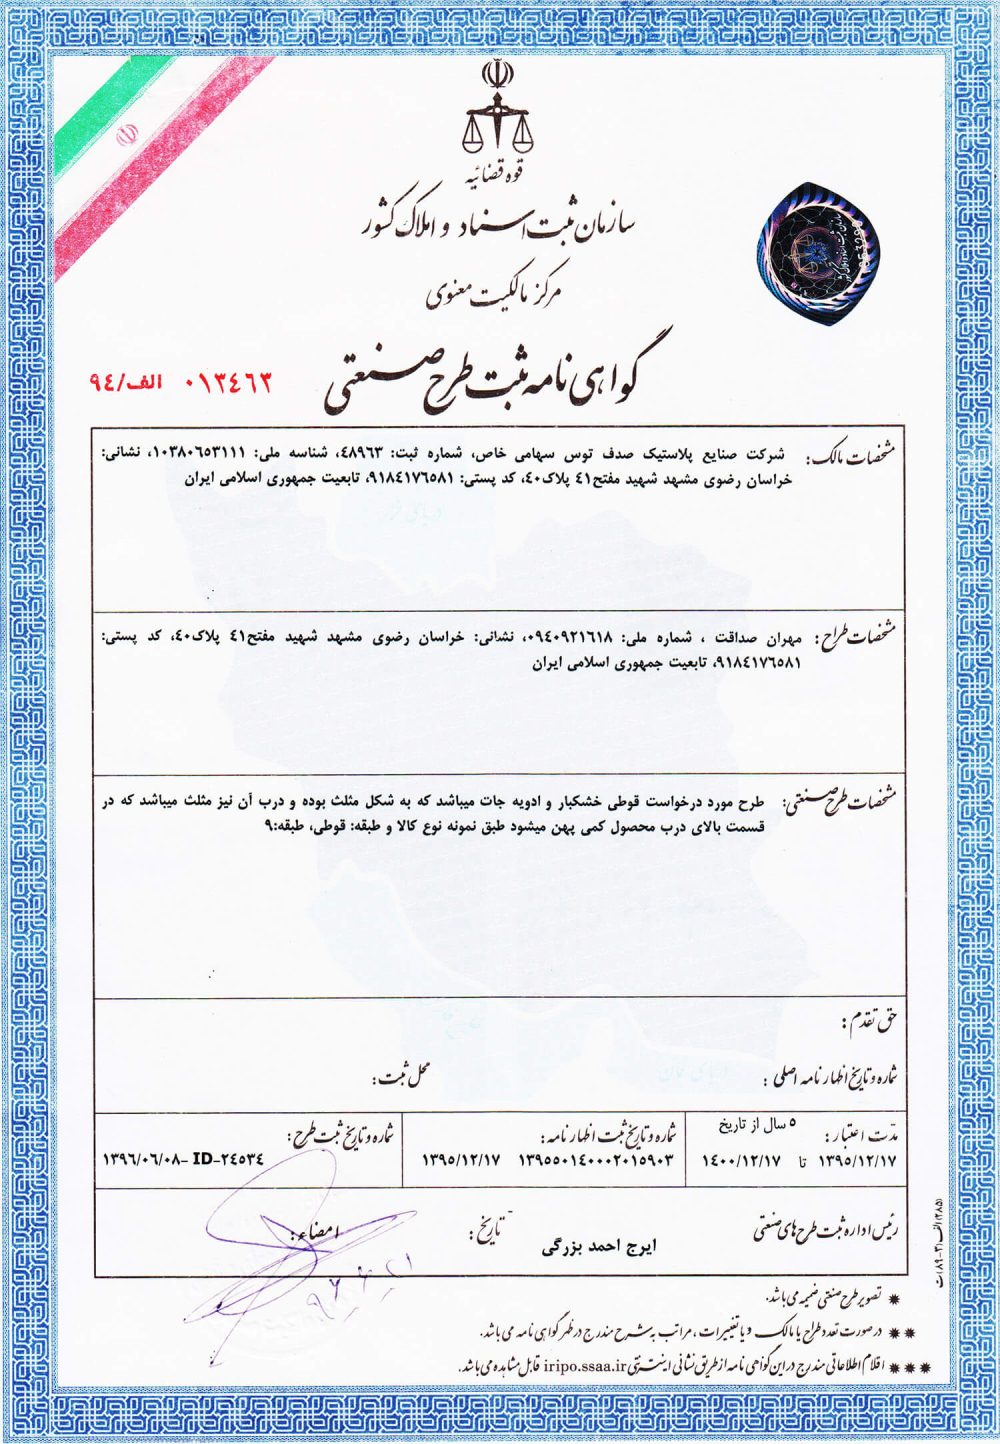 قوه قضائیه
سازمان ثبت اسناد و املاک کشور
مرکز مالکیت معنوی
گواهی نامه ثبت طرح صنعتی
۰۱۳٤٦۳ الف/۹٤
مشخصات مالک: شرکت صنایع پلاستیک صدف توس سهامی خاص، شماره ثبت: ٤۸۹٦۳، شناسه ملی: ۱۰۳۸۰٦٥۳۱۱۱، نشانی:
خراسان رضوی مشهد شهید مفتح٤۱ پلاک٤۰، کد پستی: ۹۱۸٤۱۷٦٥۸۱، تابعیت جمهوری اسلامی ایران
مشخصات طراح: مهران صداقت ، شماره ملی: ۰۹٤۰۹۲۱٦۱۸، نشانی: خراسان رضوی مشهد شهید مفتح٤۱ پلاک٤۰، کد پستی:
۹۱۸٤۱۷٦٥۸۱، تابعیت جمهوری اسلامی ایران
مشخصات طرح صنعتی: طرح مورد درخواست قوطی خشکبار و ادویه جات میباشد که به شکل مثلث بوده و درب آن نیز مثلث میباشد که در
قسمت بالای درب محصول کمی پهن میشود طبق نمونه نوع کالا و طبقه: قوطی، طبقه:۹
حق تقدم:
شماره و تاریخ اظهارنامه اصلی: محل ثبت:
مدت اعتبار: ٥ سال از تاریخ
۱۳۹٥/۱۲/۱۷ تا ۱٤۰۰/۱۲/۱۷
شماره و تاریخ ثبت اظهارنامه:
۱۳۹٥٥۰۱٤۰۰۰۲۰۱٥۹۰۳ ۱۳۹٥/۱۲/۱۷
شماره و تاریخ ثبت طرح:
۱۳۹٦/۰٦/۰۸- ID-۲٤٥۳٤
رئیس اداره ثبت طرح های صنعتی
ایرج احمد بزرگی
تاریخ:
امضاء:
٭ تصویر طرح صنعتی ضمیمه می باشد.
٭٭ در صورت تعدد طراح یا مالک و یا تغییرات، مراتب به شرح مندرج در ظهر گواهی نامه می باشد.
٭٭٭ اقلام اطلاعاتی مندرج در این گواهی نامه از طریق نشانی اینترنتی iripo.ssaa.ir قابل مشاهده می باشد.